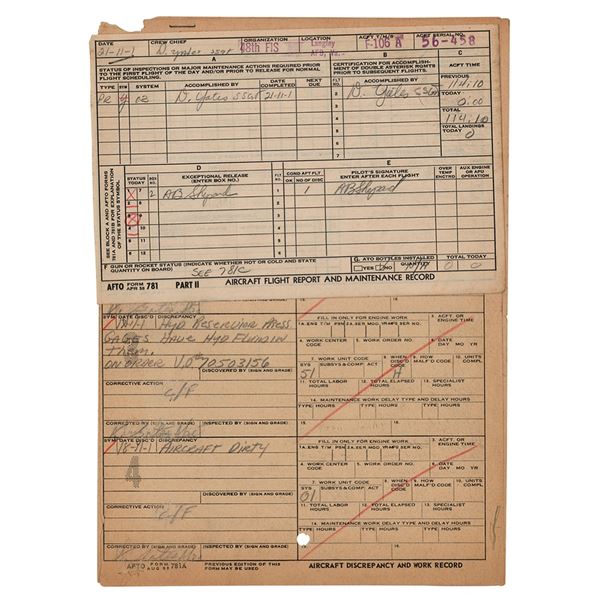 DATE CREW CHIEF ORGANIZATION LOCATION ACFT T/M/S ACFT SERIAL NO.
21-11-1 D. Yates SSGT 48th FIS Langley AFB, Va. F-106 A 56-458
A B C
STATUS OF INSPECTIONS OR MAJOR MAINTENANCE ACTIONS REQUIRED PRIOR
TO THE FIRST FLIGHT OF THE DAY AND/OR PRIOR TO RELEASE FOR NORMAL
FLIGHT SCHEDULING.
CERTIFICATION FOR ACCOMPLISH-
MENT OF DOUBLE ASTERISK ROMTS
PRIOR TO SUBSEQUENT FLIGHTS.
ACFT TIME
PREVIOUS
114:10
TYPE SYM SYSTEM ACCOMPLISHED BY DATE COMPLETED NEXT DUE FLT ACCOMPLISHED BY
PR 02 D. Yates SSGT 21-11-1 D. Yates SSGT
TODAY
0:00
TOTAL
114:10
TOTAL LANDINGS
TODAY
0
D E
SEE BLOCK A AND AFTO FORMS
781A AND 781B FOR EXPLANATION
OF THE STATUS SYMBOL
STATUS TODAY BOX NO. EXCEPTIONAL RELEASE (ENTER BOX NO.) COND AFT FLT OK NO OF DISC FLT NO. PILOT'S SIGNATURE ENTER AFTER EACH FLIGHT OVER TEMP ENCTRD AUX ENGINE OR APU OPERATION
1 7 2 AB Shepard 1 AB Shepard
2 8
3 9
4 10
5 11
6 12
F GUN OR ROCKET STATUS (INDICATE WHETHER HOT OR COLD AND STATE
QUANTITY ON BOARD)
SEE 781C
G. ATO BOTTLES INSTALLED
YES NO QUANTITY
N/A
TOTAL TODAY
0 0
AFTO FORM APR 58 781 PART II AIRCRAFT FLIGHT REPORT AND MAINTENANCE RECORD
SYM DATE DISC'D DISCREPANCY
18-11-1 Hyd Reservior Press
GAGES Have Hyd Fluid in
Them.
ON ORDER V.O. 70503156
DISCOVERED BY (SIGN AND GRADE)
CORRECTIVE ACTION
C/F
CORRECTED BY (SIGN AND GRADE) INSPECTED BY (SIGN AND GRADE)
FILL IN ONLY FOR ENGINE WORK
3. ACFT. OR ENGINE TIME
4. WORK CENTER CODE 5. WORK ORDER NUMBER 6. DATE DAY MO YR
7. WORK UNIT CODE
SYS SUBSYS & COMPL ACT
51
9. WHEN DISC'D CODE 9. HOW MALF'D CODE 10. UNITS COMPL.
H
11. TOTAL LABOR HOURS 12. TOTAL ELAPSED HOURS 13. SPECIALIST HOURS
14. MAINTENANCE WORK AND DELAY TYPE AND DELAY HOURS
TYPE HOURS TYPE HOURS TYPE HOURS TYPE HOURS
SYM DATE DISC'D DISCREPANCY
18-11-1 AIRCRAFT DIRTY
4
DISCOVERED BY (SIGN AND GRADE)
CORRECTIVE ACTION
C/F
CORRECTED BY (SIGN AND GRADE) INSPECTED BY (SIGN AND GRADE)
FILL IN ONLY FOR ENGINE WORK
3. ACFT. OR ENGINE TIME
4. WORK CENTER CODE 5. WORK ORDER NUMBER 6. DATE DAY MO YR
7. WORK UNIT CODE
SYS SUBSYS & COMPL ACT
01
11. TOTAL LABOR HOURS 12. TOTAL ELAPSED HOURS 13. SPECIALIST HOURS
14. MAINTENANCE WORK AND DELAY TYPE AND DELAY HOURS
TYPE HOURS TYPE HOURS TYPE HOURS TYPE HOURS
15. 16.
AFTO FORM AUG 59 781A PREVIOUS EDITION OF THIS FORM MAY BE USED AIRCRAFT DISCREPANCY AND WORK RECORD